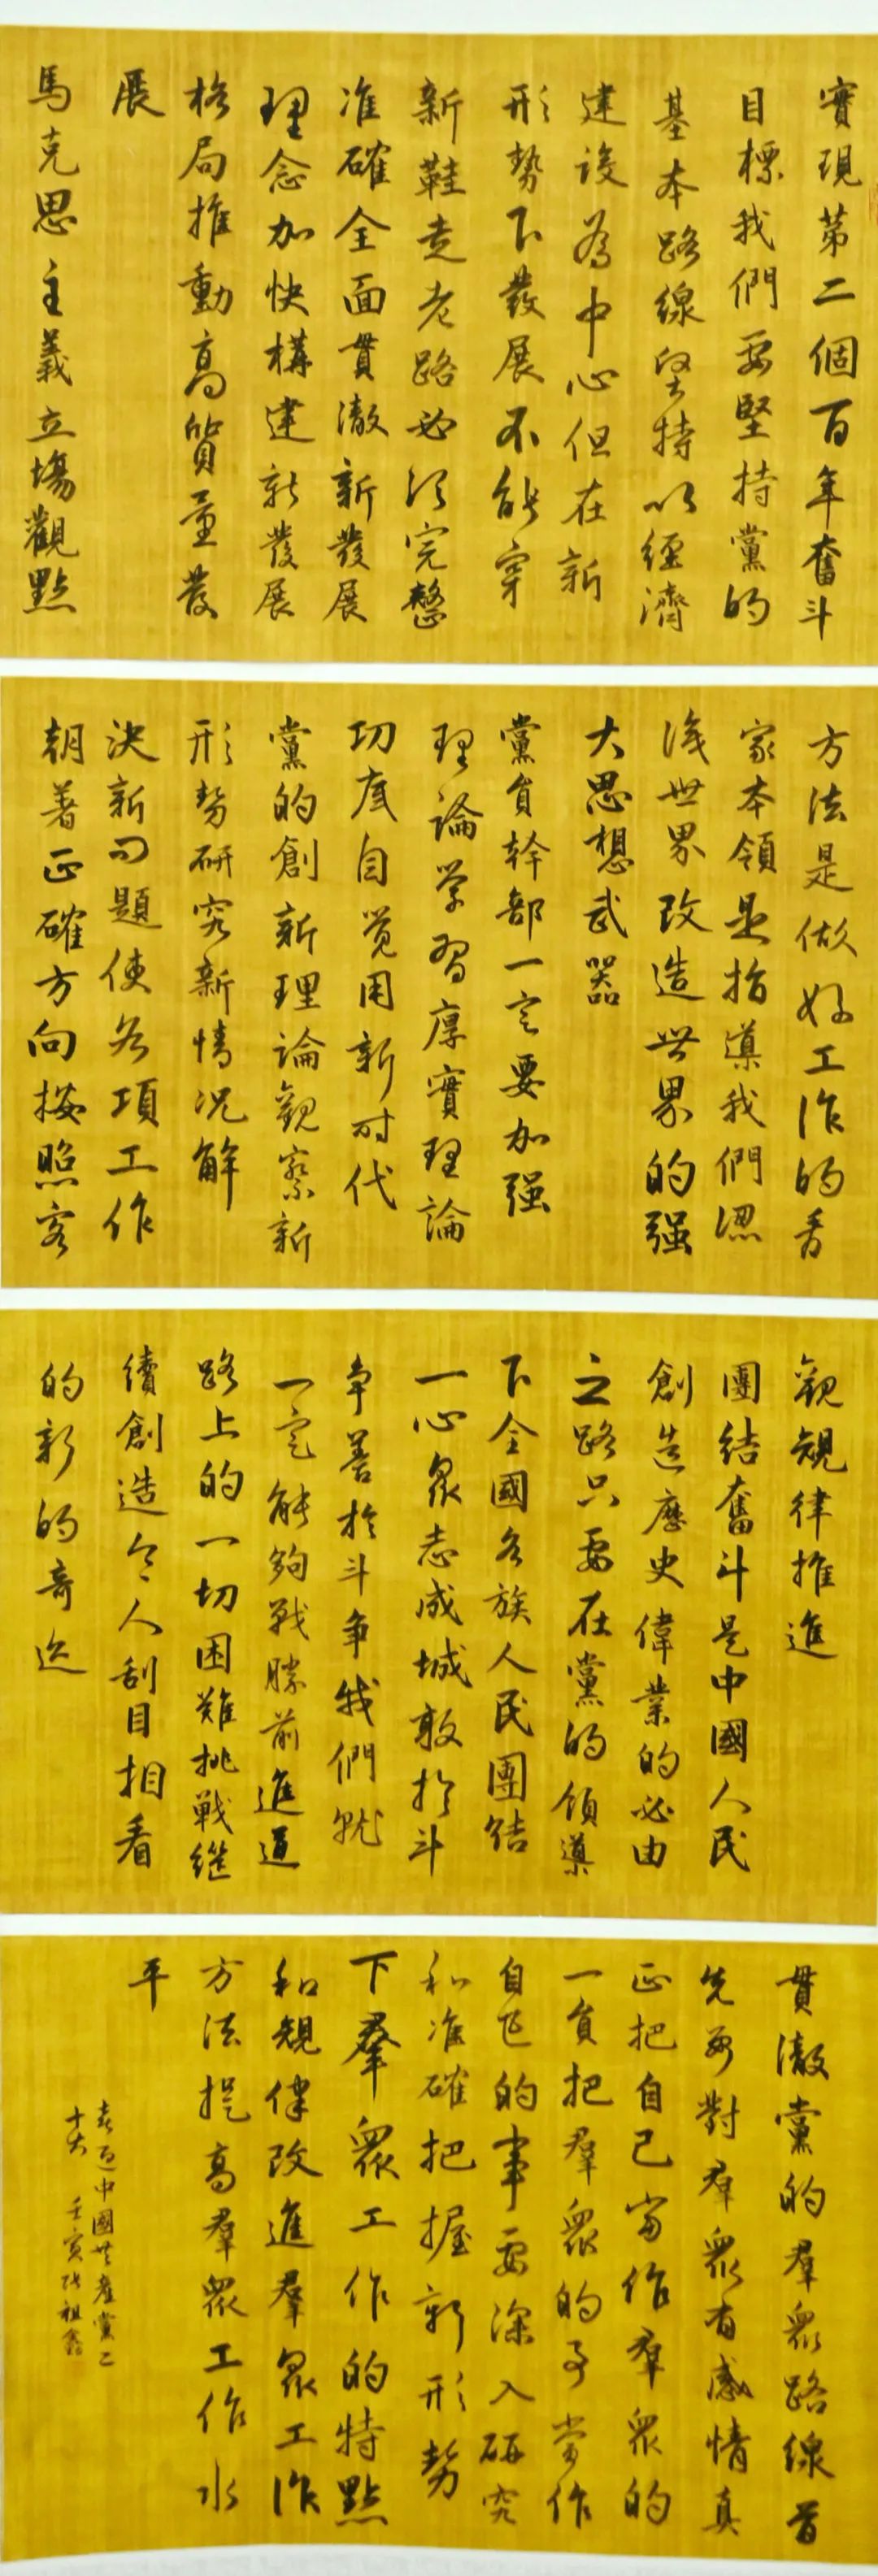 實現第二個百年奮斗
目標我們要堅持黨的
基本路線堅持以經濟
建設為中心但在新
形勢下發展不能穿
新鞋走老路必須完整
准確全面貫澈新發展
理念加快構建新發展
格局推動高質量發
展
馬克思主義立場觀點
方法是做好工作的看
家本領是指導我們認
識世界改造世界的强
大思想武器
黨員幹部一定要加强
理論学習厚實理論
功底自覚用新时代
黨的創新理論觀察新
形勢研究新情况解
決新问題使各項工作
朝著正確方向按照客
觀規律推進
團結奮斗是中國人民
創造歷史偉業的必由
之路只要在黨的領導
下全國各族人民團結
一心衆志成城敢於斗
争善於斗争我們就
一定能夠戰勝前進道
路上的一切困難挑戰继
續創造令人刮目相看
的新的奇迹
貫澈黨的羣衆路線首
先要對羣衆有感情真
正把自己當作羣衆的
一員把羣衆的事當作
自己的事要深入研究
和准確把握新形勢
下羣衆工作的特點
和規律改進羣衆工作
方法提高羣衆工作水
平
喜迎中國共產黨二
十大 壬寅張祖鑫